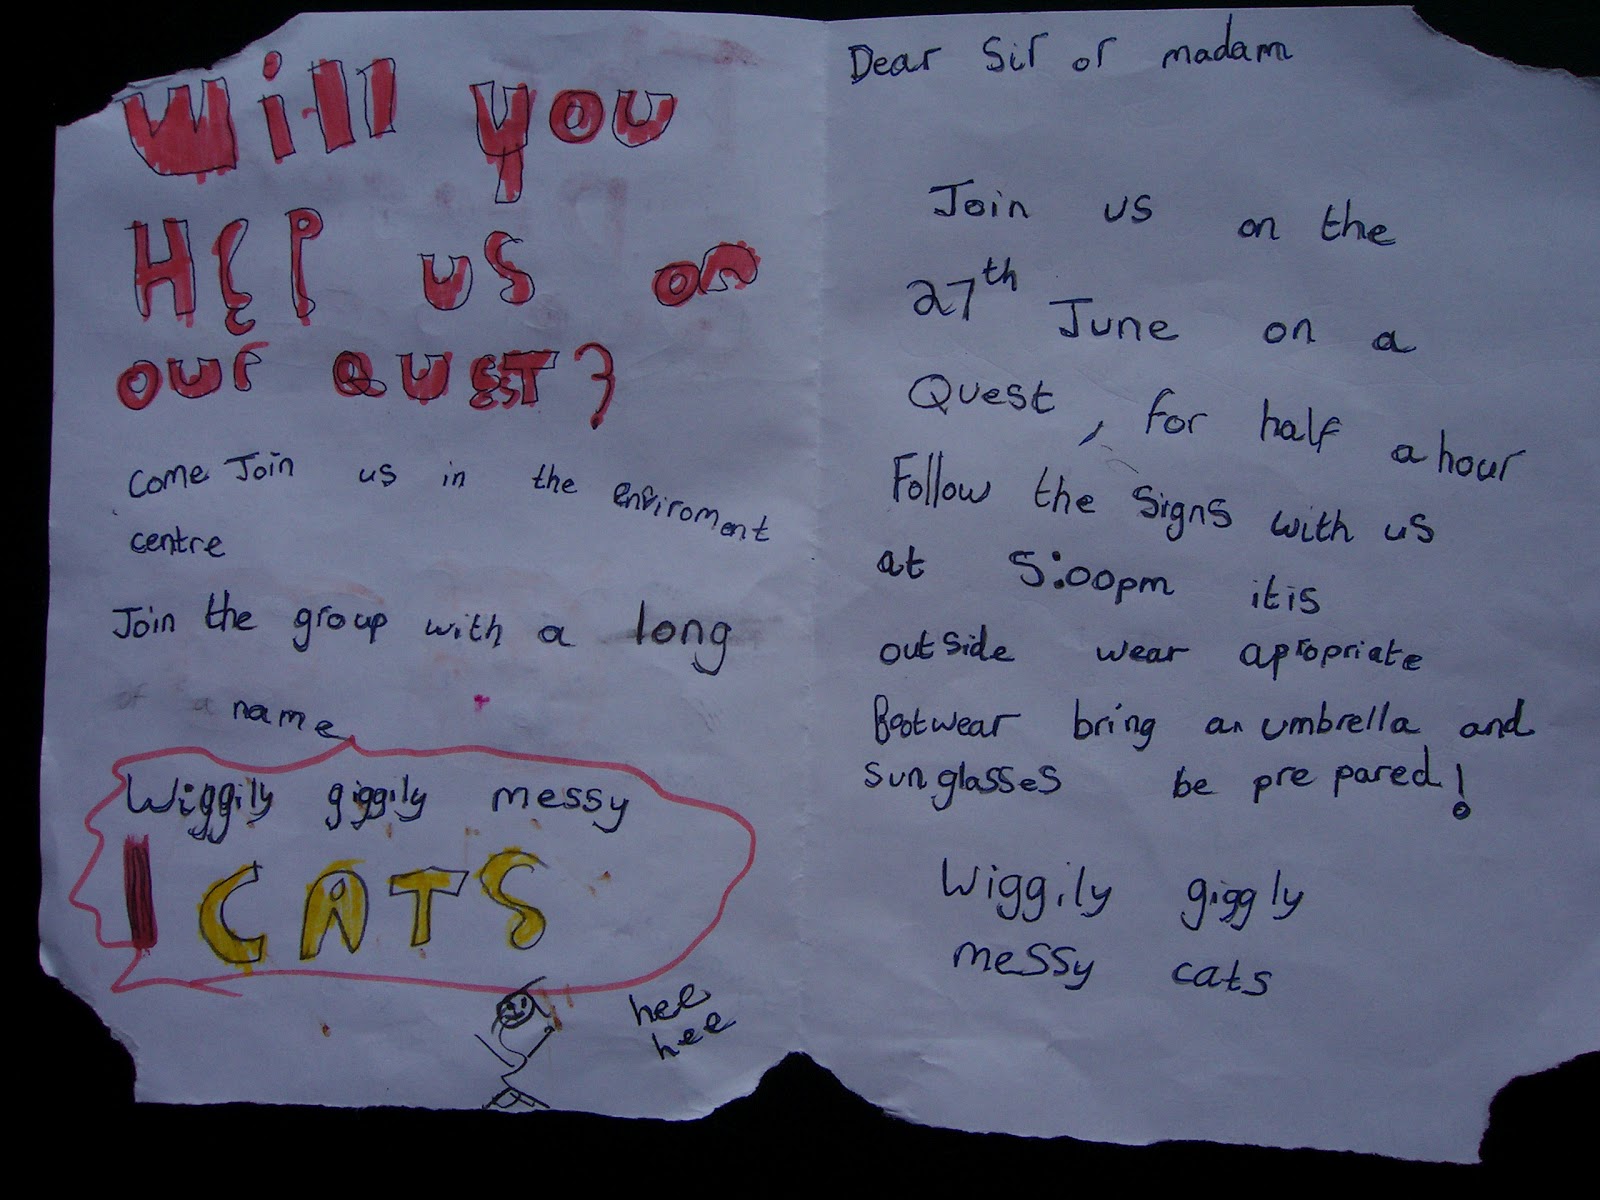 Will you
HEP us on
our QUEST?
Come Join us in the enviroment
centre
Join the group with a long
name
Wiggily giggily messy
CATS
hee
hee
Dear Sir or madam
Join us on the
27th June on a
Quest, for half a hour
Follow the signs with us
at 5:00pm it is
outside wear apropriate
footwear bring an umbrella and
sunglasses be prepared!
Wiggily giggly
messy cats